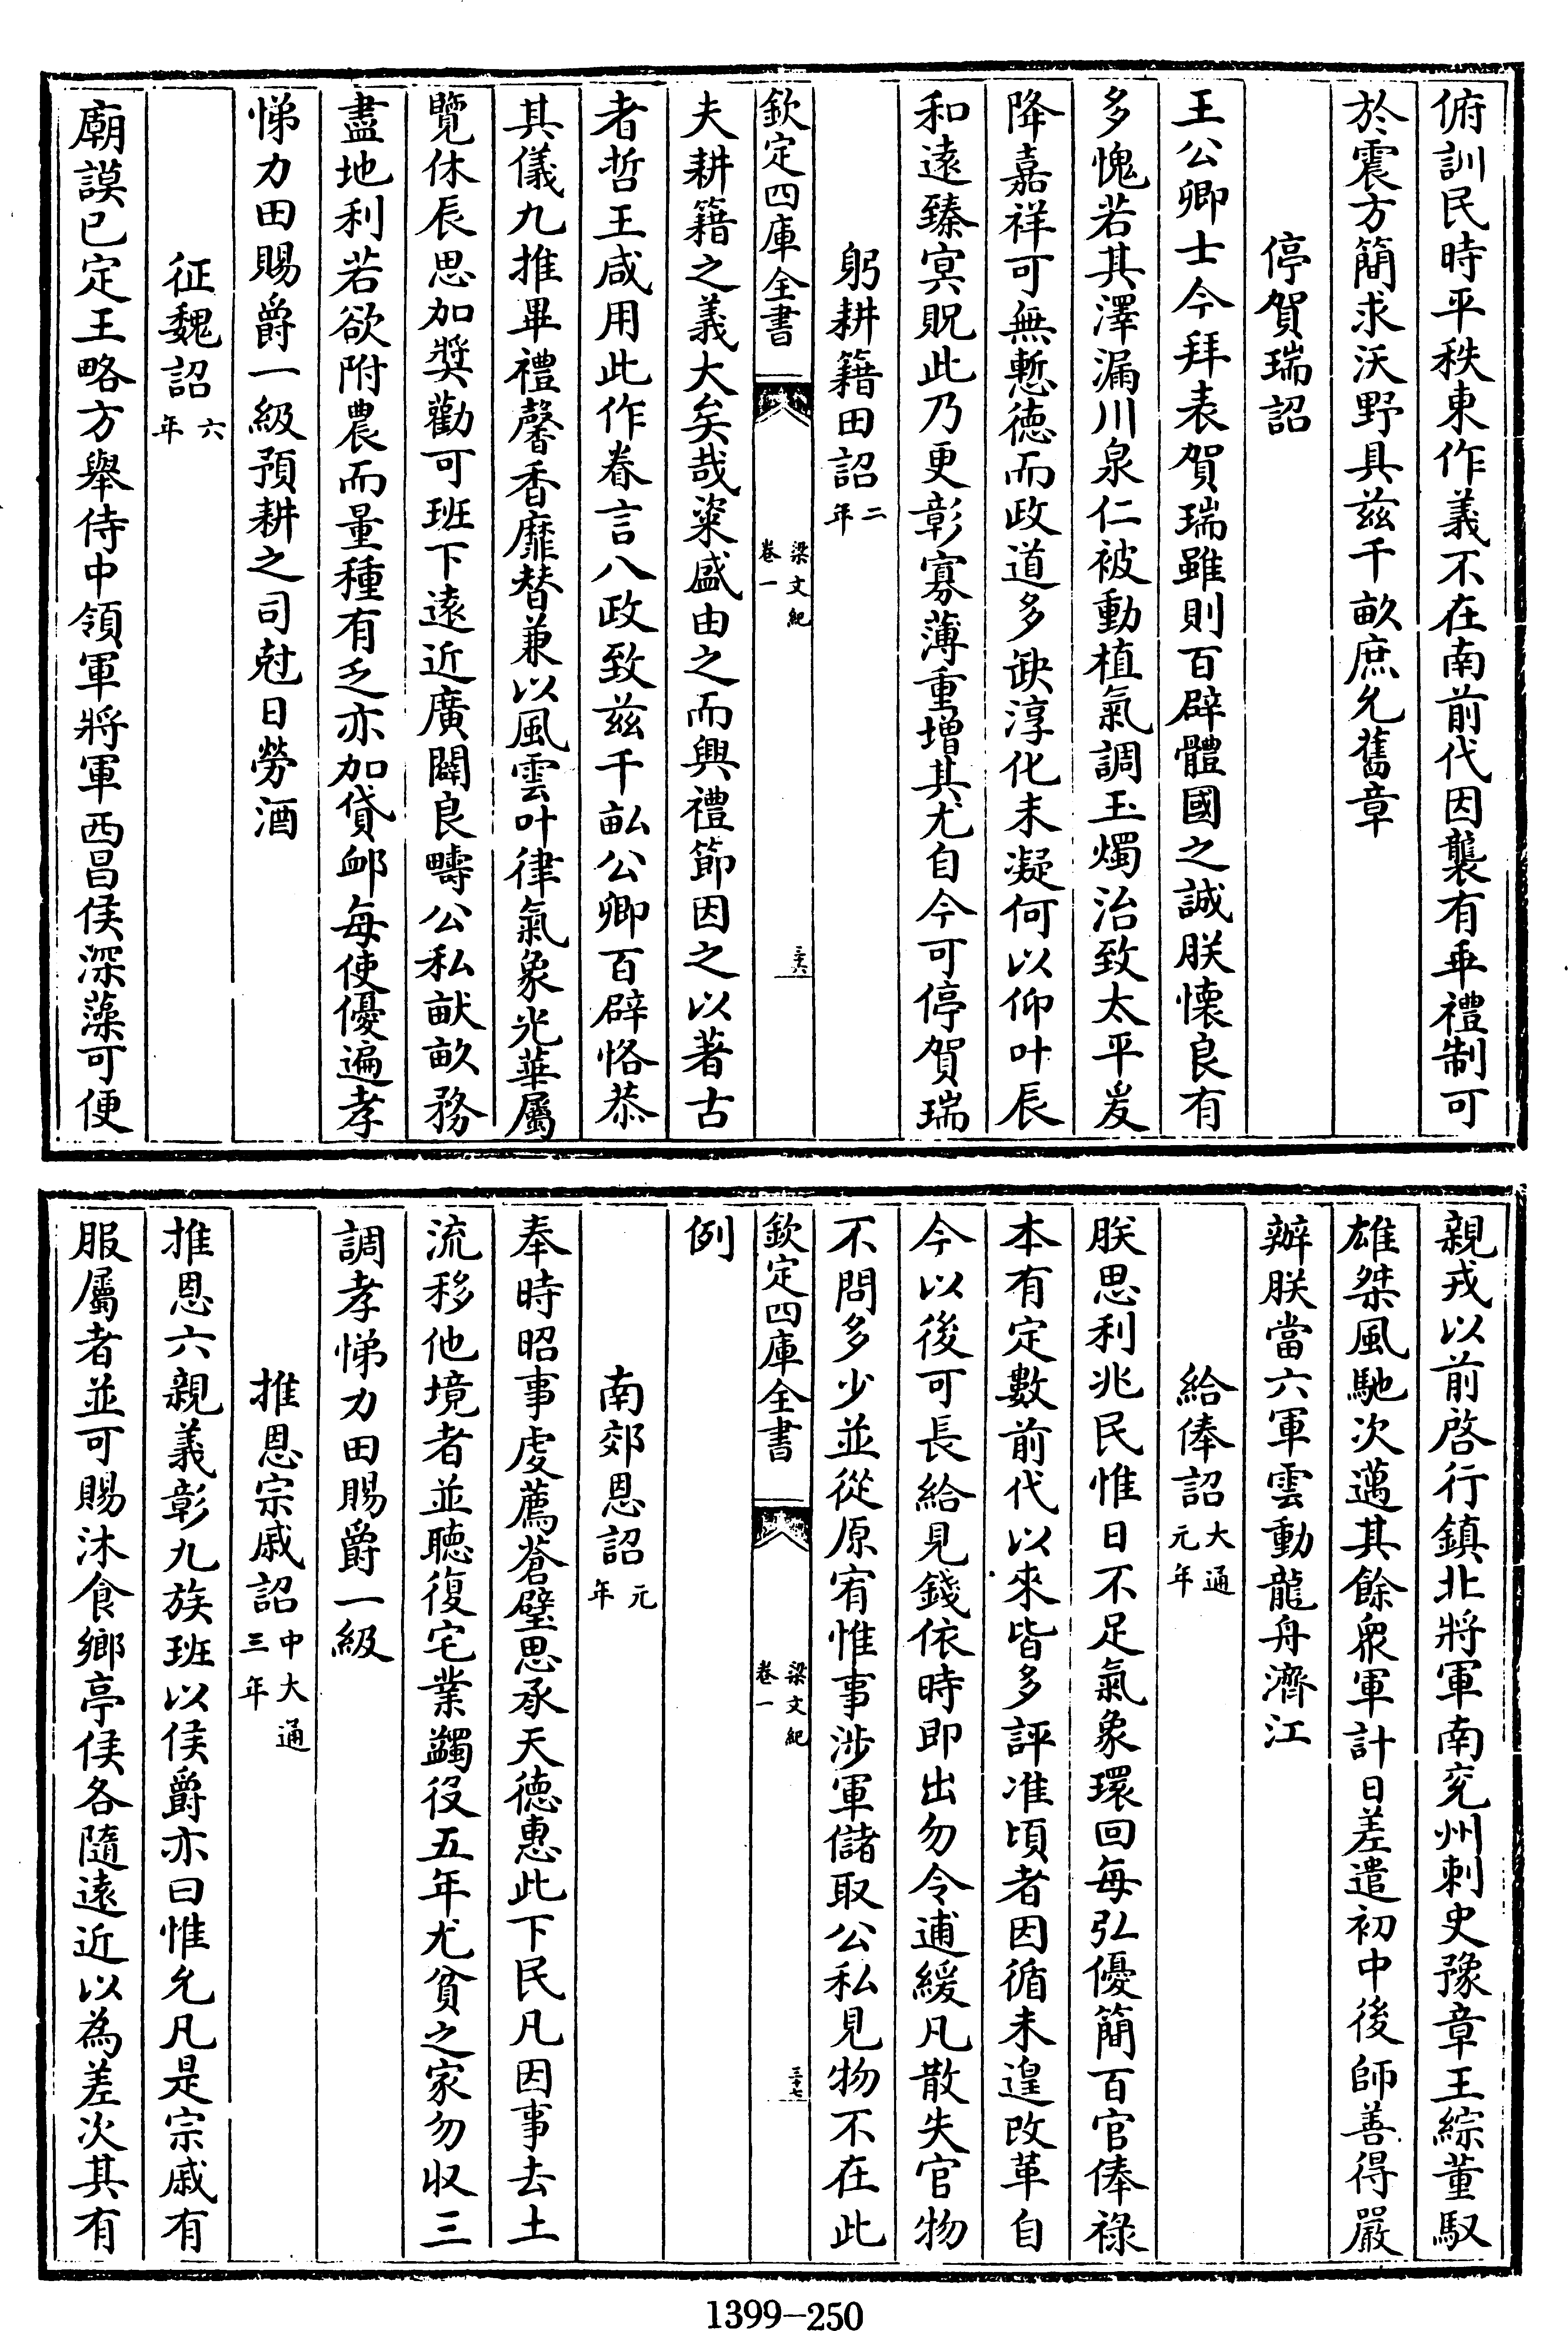 俯訓民時平秩東作義不在南前代因襲有乖禮制可
於震方簡求沃野具兹千畝庶允舊章
停賀瑞詔
王公卿士今拜表賀瑞雖則百辟體國之誠朕懐良有
多愧若其澤漏川泉仁被動植氣調玉燭治致太平爰
降嘉祥可無慙徳而政道多缺淳化未凝何以仰叶辰
和遠臻㝠貺此乃更彰寡薄重増其尤自今可停賀瑞
躬耕籍田詔二年
欽定四庫全書 梁文紀 卷一 三十六
夫耕籍之義大矣哉粢盛由之而興禮節因之以著古
者哲王咸用此作眷言八政致兹千畆公卿百辟恪恭
其儀九推畢禮馨香靡替兼以風雲叶律氣象光華屬
覽休辰思加奬勸可班下遠近廣闢良疇公私畎畝務
盡地利若欲附農而量種有乏亦加貸䘏每使優遍孝
悌力田賜爵一級預耕之司尅日勞酒
征魏詔六年
廟謨已定王略方舉侍中領軍將軍西昌侯深藻可便
親戎以前啓行鎮北將軍南兖州刺史豫章王綜董馭
雄桀風馳次邁其餘衆軍計日差遣初中後師善得嚴
辦朕當六軍雲動龍舟濟江
給俸詔大通元年
朕思利兆民惟日不足氣象環回每弘優簡百官俸祿
本有定數前代以來皆多評准頃者因循未遑改革自
今以後可長給見錢依時即出勿令逋緩凡散失官物
不問多少並從原宥惟事涉軍儲取公私見物不在此
欽定四庫全書 梁文紀 卷一 三十七
例
南郊恩詔元年
奉時昭事虔薦蒼璧思承天徳惠此下民凡因事去土
流移他境者並聽復宅業蠲役五年尤貧之家勿收三
調孝悌力田賜爵一級
推恩宗戚詔中大通三年
推恩六親義彰九族班以侯爵亦曰惟允凡是宗戚有
服屬者並可賜沐食鄉亭侯各隨遠近以為差次其有
1399-250